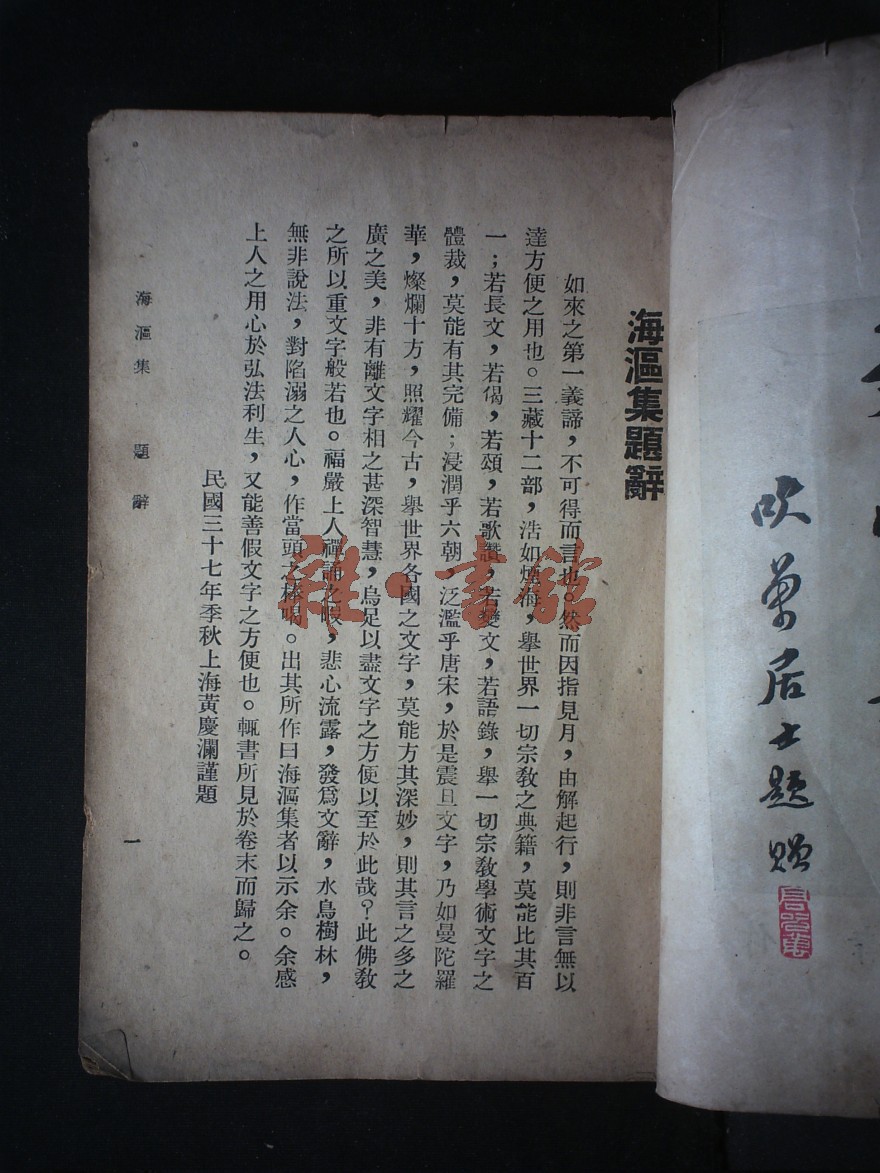 吹萬居士題贈
海漚集題辭
如來之第一義諦，不可得而言也。然而因指見月，由解起行，則非言無以
達方便之用也。三藏十二部，浩如煙海，舉世界一切宗教之典籍，莫能比其百
一；若長文，若偈，若頌，若歌讚，若變文，若語錄，舉一切宗教學術文字之
體裁，莫能有其完備；浸潤乎六朝，泛濫乎唐宋，於是震旦文字，乃如曼陀羅
華，燦爛十方，照耀今古，舉世界各國之文字，莫能方其深妙，則其言之多之
廣之美，非有離文字相之甚深智慧，烏足以盡文字之方便以至於此哉？此佛教
之所以重文字般若也。福嚴上人禪誦之暇，悲心流露，發爲文辭，水鳥樹林，
無非說法，對陷溺之人心，作當頭之棒喝。出其所作曰海漚集者以示余。余感
上人之用心於弘法利生，又能善假文字之方便也。輒書所見於卷末而歸之。
民國三十七年季秋上海黃慶瀾謹題
海漚集 題辭
一
雜·書館